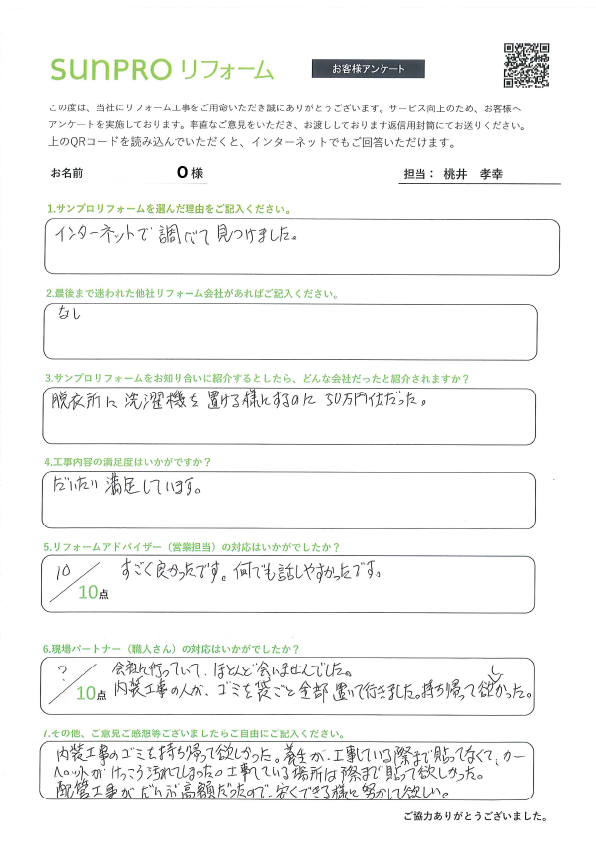 sunpro リフォーム
お客様アンケート
この度は、当社にリフォーム工事をご用命いただき誠にありがとうございます。サービス向上のため、お客様へ
アンケートを実施しております。率直なご意見をいただき、お渡ししております返信用封筒にてお送りください。
上のQRコードを読み込んでいただくと、インターネットでもご回答いただけます。
お名前 O 様 担当： 桃井 孝幸
1.サンプロリフォームを選んだ理由をご記入ください。
インターネットで調べて見つけました。
2.最後まで迷われた他社リフォーム会社があればご記入ください。
なし
3.サンプロリフォームをお知り合いに紹介するとしたら、どんな会社だったと紹介されますか？
脱衣所に洗濯機を置ける様にするのに50万円位だった。
4.工事内容の満足度はいかがですか？
だいたい満足しています。
5.リフォームアドバイザー（営業担当）の対応はいかがでしたか？
10／10点 すごく良かったです。何でも話しやすかったです。
6.現場パートナー（職人さん）の対応はいかがでしたか？
?／10点 会社に行っていて、ほとんど会いませんでした。
内装工事の人が、ゴミを袋ごと全部置いて行きました。持ち帰って欲しかった。
7.その他、ご意見ご感想等ございましたらご自由にご記入ください。
内装工事のゴミを持ち帰って欲しかった。養生が、工事している際まで貼ってなくて、カー
ペットがけっこう汚れてしまった。工事している場所は際まで貼って欲しかった。
配管工事がだいぶ高額だったので、安くできる様に努力して欲しい。
ご協力ありがとうございました。